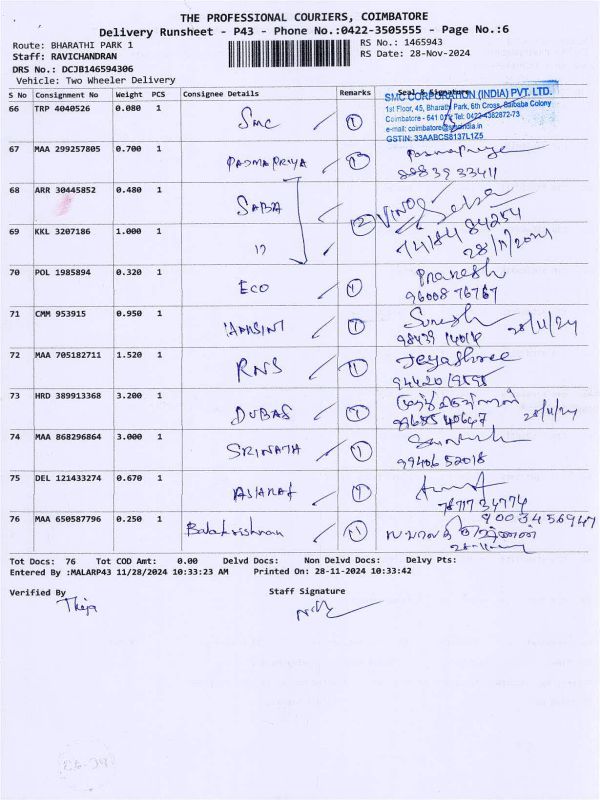 THE PROFESSIONAL COURIERS, COIMBATORE
Delivery Runsheet - P43 - Phone No.:0422-3505555 - Page No.:6
Route: BHARATHI PARK 1 RS No.: 1465943
Staff: RAVICHANDRAN RS Date: 28-Nov-2024
DRS No.: DCJB146594306
Vehicle: Two Wheeler Delivery
S No Consignment No Weight PCS Consignee Details Remarks Seal & Signature
SMC CORPORATION (INDIA) PVT. LTD.
1st Floor, 45, Bharathi Park, 6th Cross, Saibaba Colony
Coimbatore - 641 011 Tel: 0422-4382872-73
e-mail: coimbatore@smcindia.in
GSTIN: 33AABCS8137L1Z5
66 TRP 4040526 0.080 1 SMC 1
67 MAA 299257805 0.700 1 PADMAPRIYA 1 Padmapriya
8883933411
68 ARR 30445852 0.480 1 SABA 2 VINOD Saba
69 KKL 3207186 1.000 1 "
74184 84254
28/11/2024
70 POL 1985894 0.320 1 ECO 1 Pranesh
96008 76767
71 CMM 953915 0.950 1 1 Suresh
98439 14014 28/11/24
72 MAA 705182711 1.520 1 RNS 1 Jeyashree
73 HRD 389913368 3.200 1 DUBAS 1
28/11/24
74 MAA 868296864 3.000 1 SRINATH 1
99406 52018
75 DEL 121433274 0.670 1 1
78717 34774
76 MAA 650587796 0.250 1 Balakrishnan 1 9003456947
Tot Docs: 76 Tot COD Amt: 0.00 Delvd Docs: Non Delvd Docs: Delvy Pts:
Entered By :MALARP43 11/28/2024 10:33:23 AM Printed On: 28-11-2024 10:33:42
Verified By Staff Signature
Theja